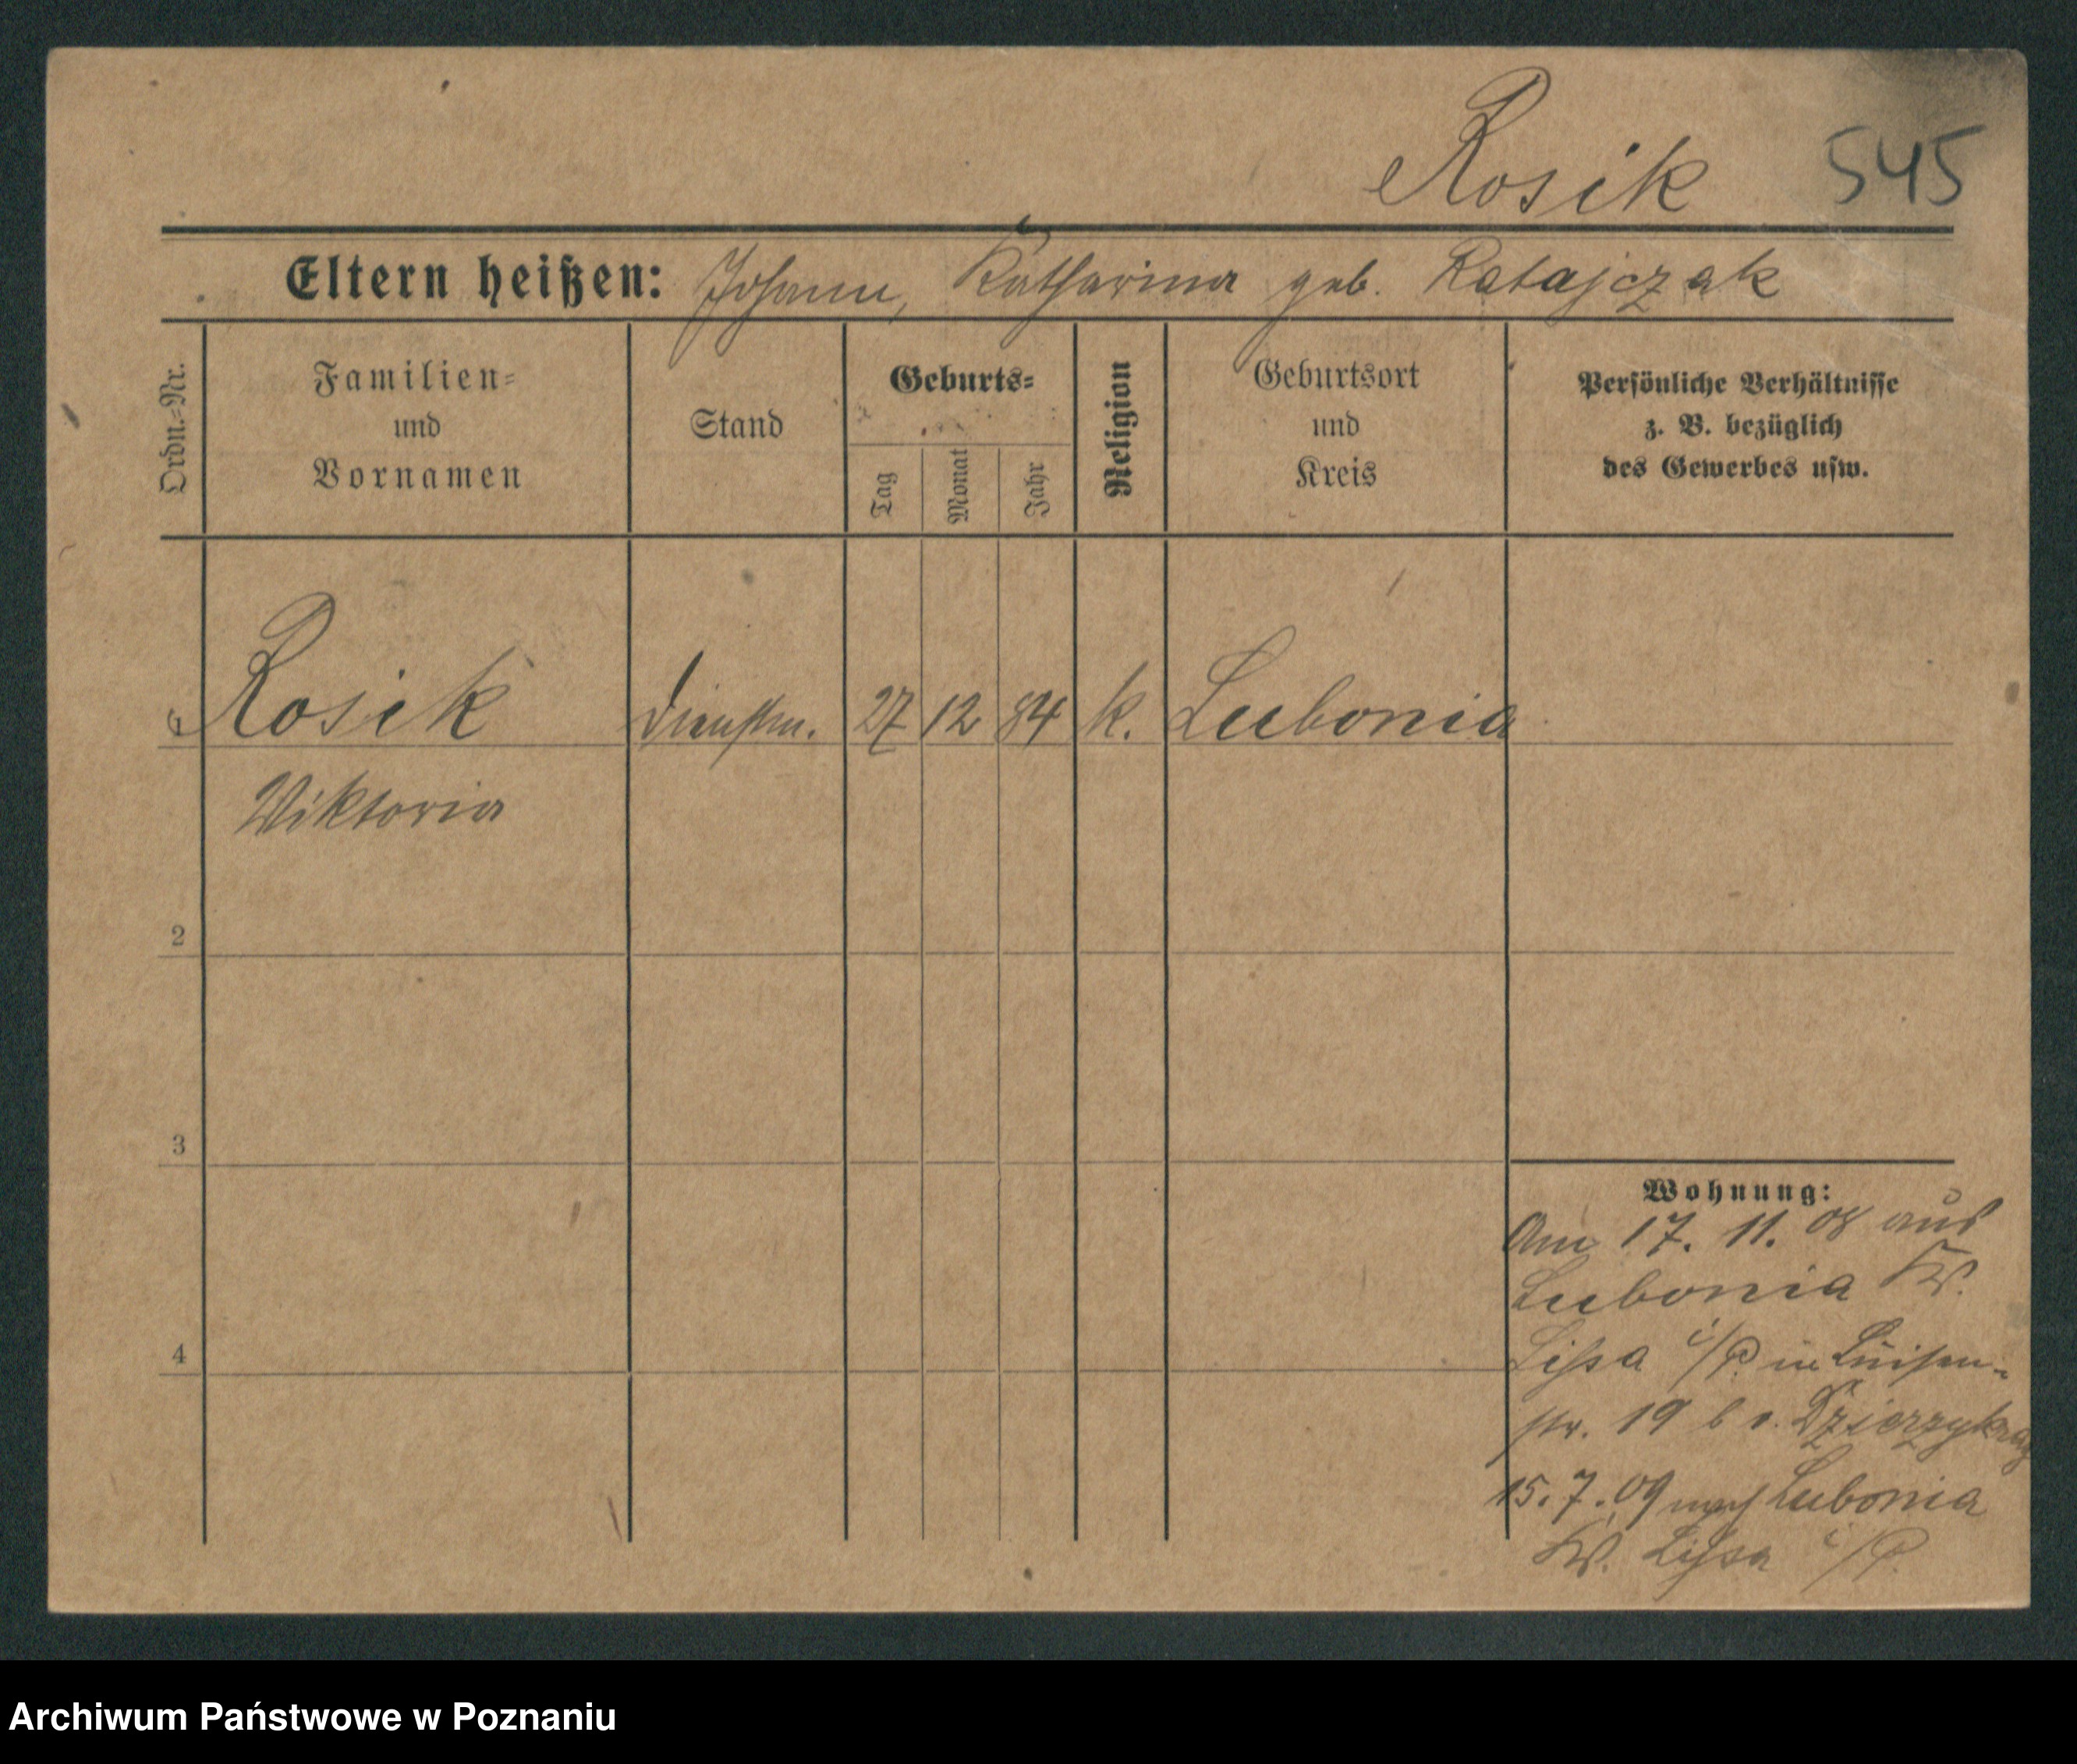 Rosik 545
Eltern heißen: Johann, Katharina geb. Ratajczak
Ordn.=Nr.
Familien=
und
Vornamen
Stand
Geburts=
Tag
Monat
Jahr
Religion
Geburtsort
und
Kreis
Persönliche Verhältnisse
z. B. bezüglich
des Gewerbes usw.
1 Rosik Dienstm. 27 12 84 k. Lubonia
Viktoria
2
3
4
Wohnung:
Am 17. 11. 08 aus
Lubonia Kr.
Lissa i/P. in Luisen-
str. 19 b
15.7.09 nach Lubonia
Kr. Lissa i/P.
Archiwum Państwowe w Poznaniu